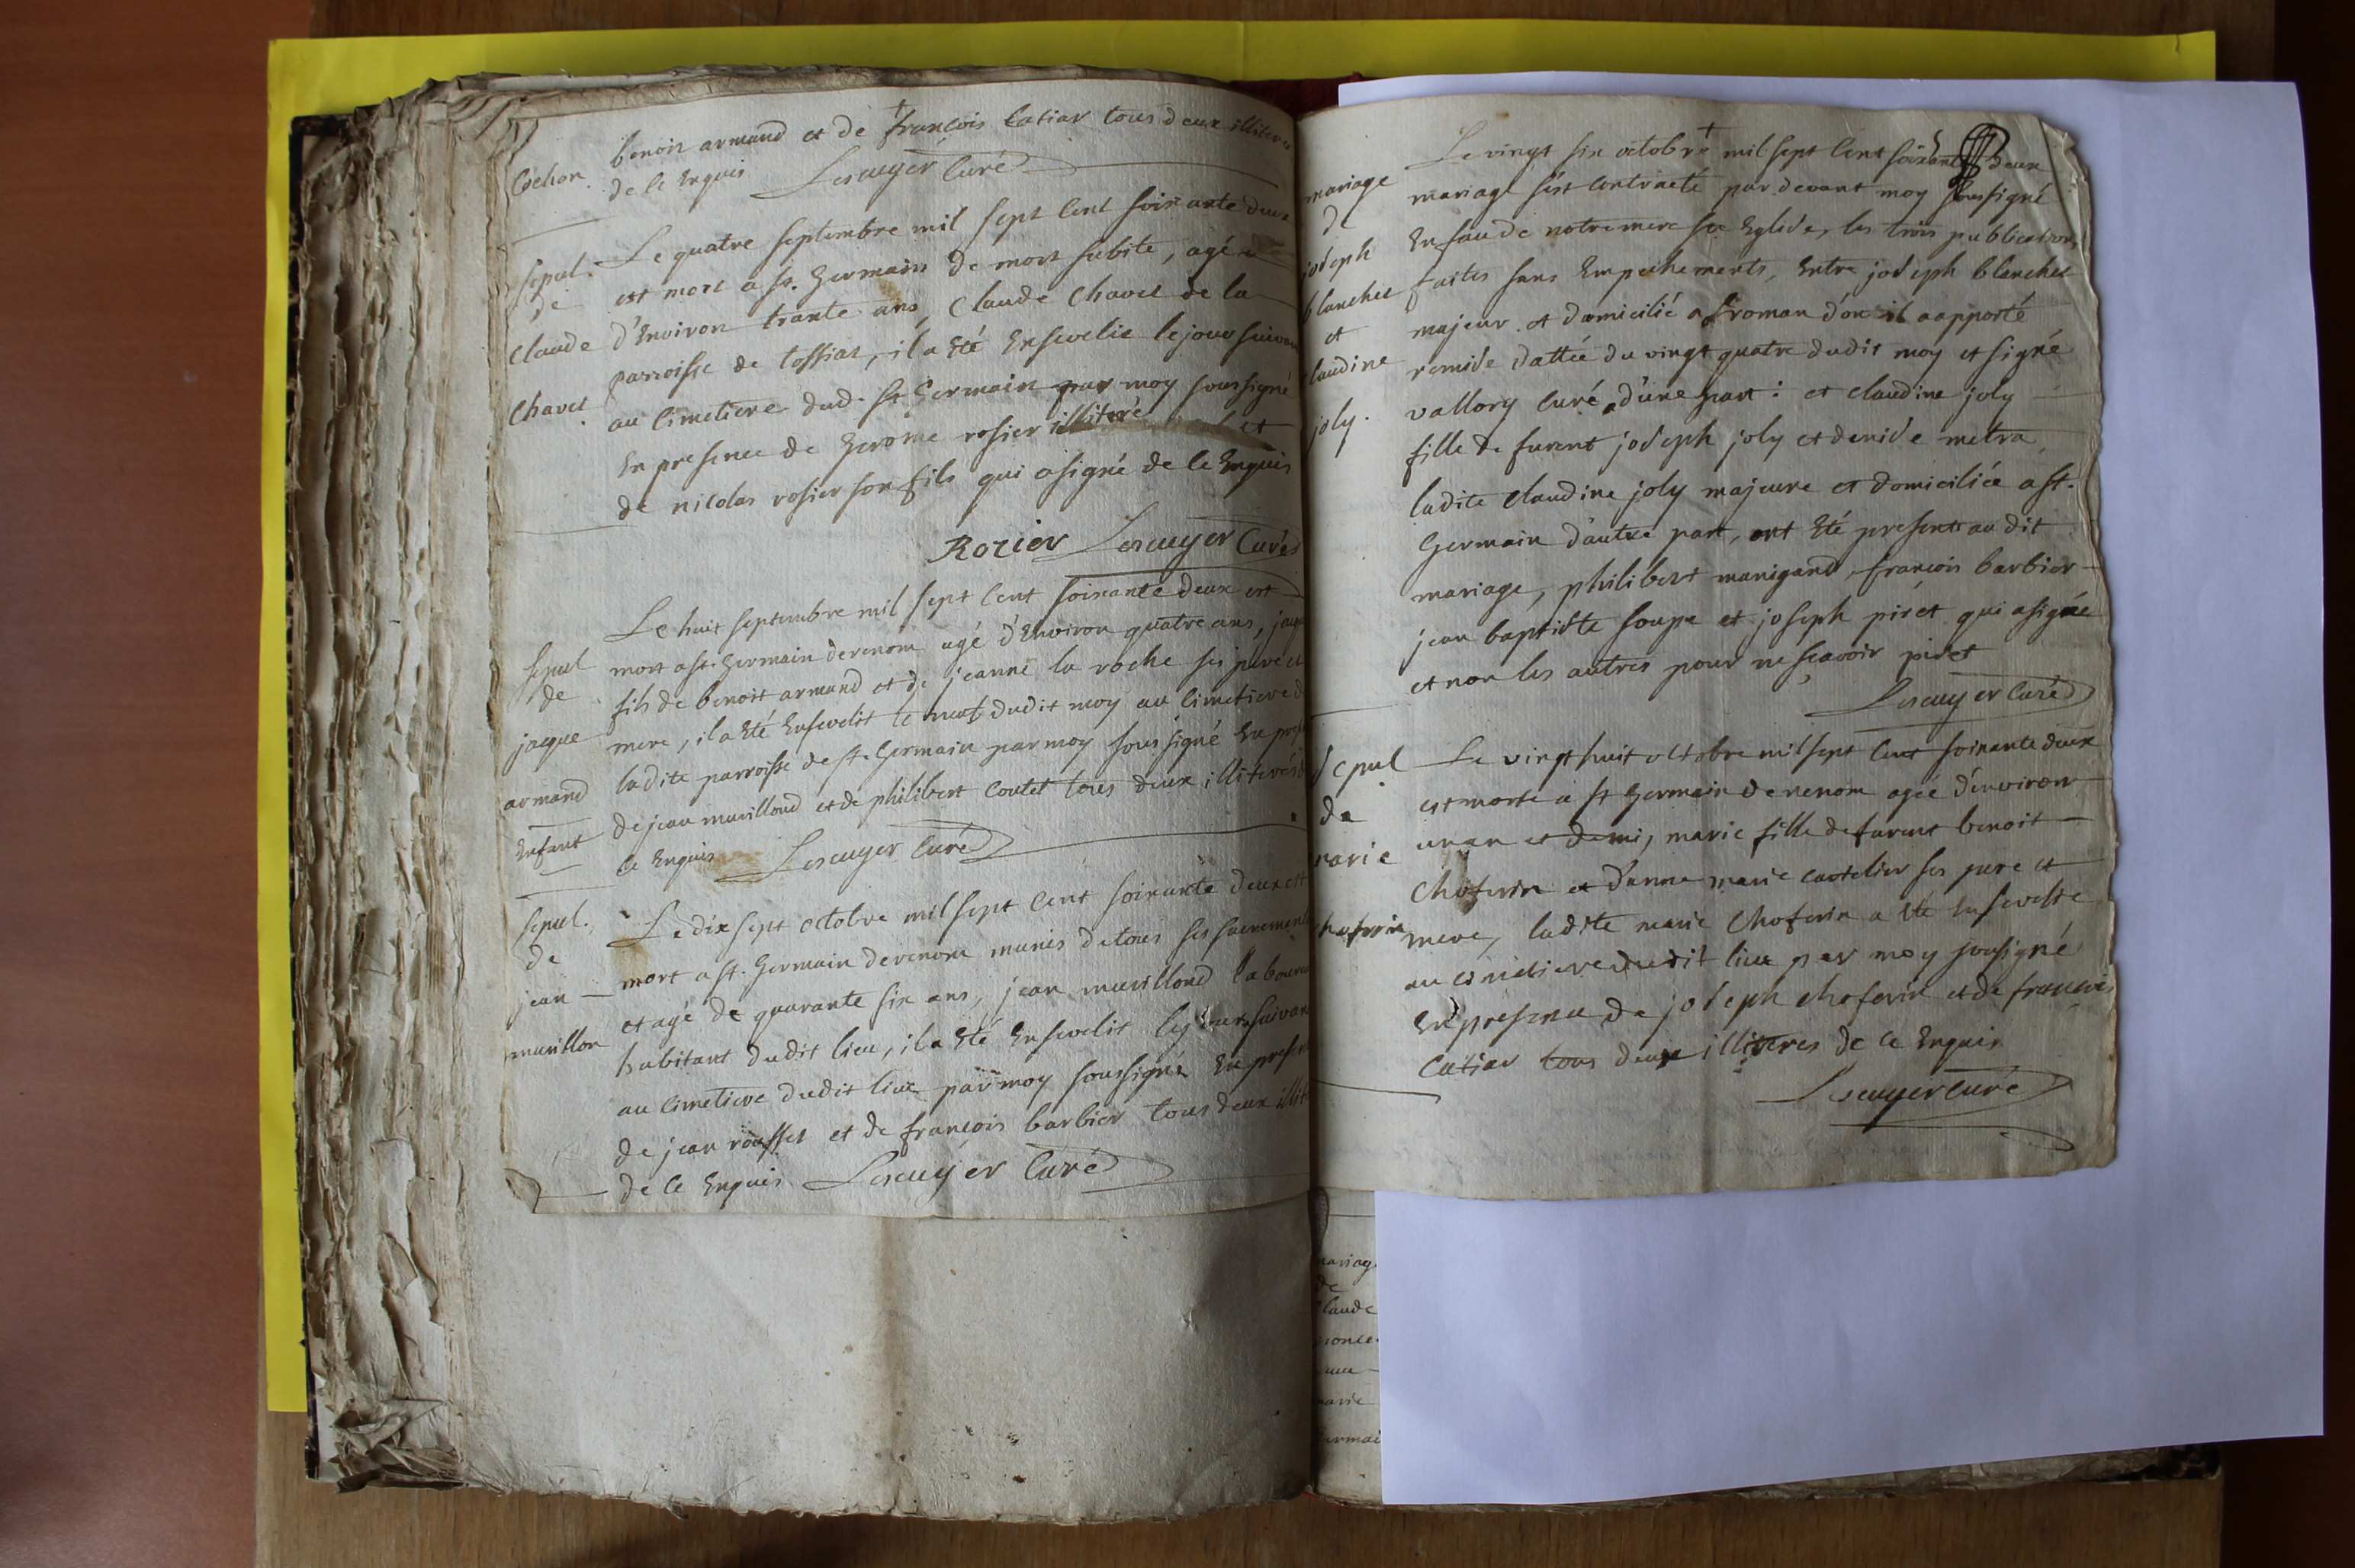 benoit armand et de françois catiar tous deux illiteré
Cochon.
de ce Enquis Lescuyer Curé
Sepul.
de
claude
chavet
Le quatre septembre mil sept cent soixante deux
est mort a st. Germain de mort subite, agé
d'Environ trante ans, Claude Chavet de la
parroisse de tossiat, il a Eté Ensevelie le jour suivan
au Cimetiere dud. st Germain par moy soussigné
En presence de Gerome rosier illiteré et
de nicolas rosier son fils qui a signé de ce Enquis
Rozier Lescuyer Curé
Sepul
de
jacque
armand
Enfant
Le huit septembre mil sept cent soixante deux est
mort a st. Germain de renom agé d'Environ quatre ans, jacque
fils de benoit armand et de jeanne la roche ses pere et
mere, il a Eté Ensevelit le neuf dudit moy au Cimetiere d
ladite parroisse de st. Germain par moy soussigné En pres
de jean murillond et de philibert Coutet tous deux illiterés
ce Enquis Lescuyer Curé
Sepul.
de
jean
murillon
Le dix sept octobre mil sept cent soixante deux est
mort a st. Germain de renom munis de tous ses sacrements
et agé de quarante six ans, jean murillond laboureu
habitant dudit lieu, il a Eté Ensevelit le jour suivan
au Cimetiere dudit lieu par moy soussigné En presen
de jean rousset et de françois barbier tous deux illit
de ce Enquis Lescuyer Curé
mariage
de
joseph
blanchet
et
claudine
joly.
Le vingt six octobre mil sept Cent soixante deux
mariage s'est Contracté par devant moy soussigné
En face de notre mere ste Eglise, les trois publications
faites sans Empechements, Entre joseph blanchet
majeur et domicilié a st roman d'ou il a apporté
remise dattée du vingt quatre dudit moy et signé
vallory Curé d'une part : et claudine joly
fille de furent joseph joly et denise metra
ladite Claudine joly majeure et domiciliée a st.
Germain d'autre part, ont Eté present au dit
mariage, philibert manigand, françois barbier
jean baptiste soupe et joseph piret qui a signé
et non les autres pour ne sçavoir piret
Lescuyer Curé
Sepul
de
marie
choferin
Le vingt huit octobre mil sept Cent soixante deux
est morte a st Germain de renom agée d'environ
un an et demi, marie fille de furent benoit
Choferin et d'anne marie castelier ses pere et
mere, ladite marie Choferin a Eté Ensevelie
au Cimetiere dudit lieu par moy soussigné
En presence de joseph choferin et de françois
Catiar tous deux illiteres de ce Enquis
Lescuyer Curé
mariag
de
laude
marie